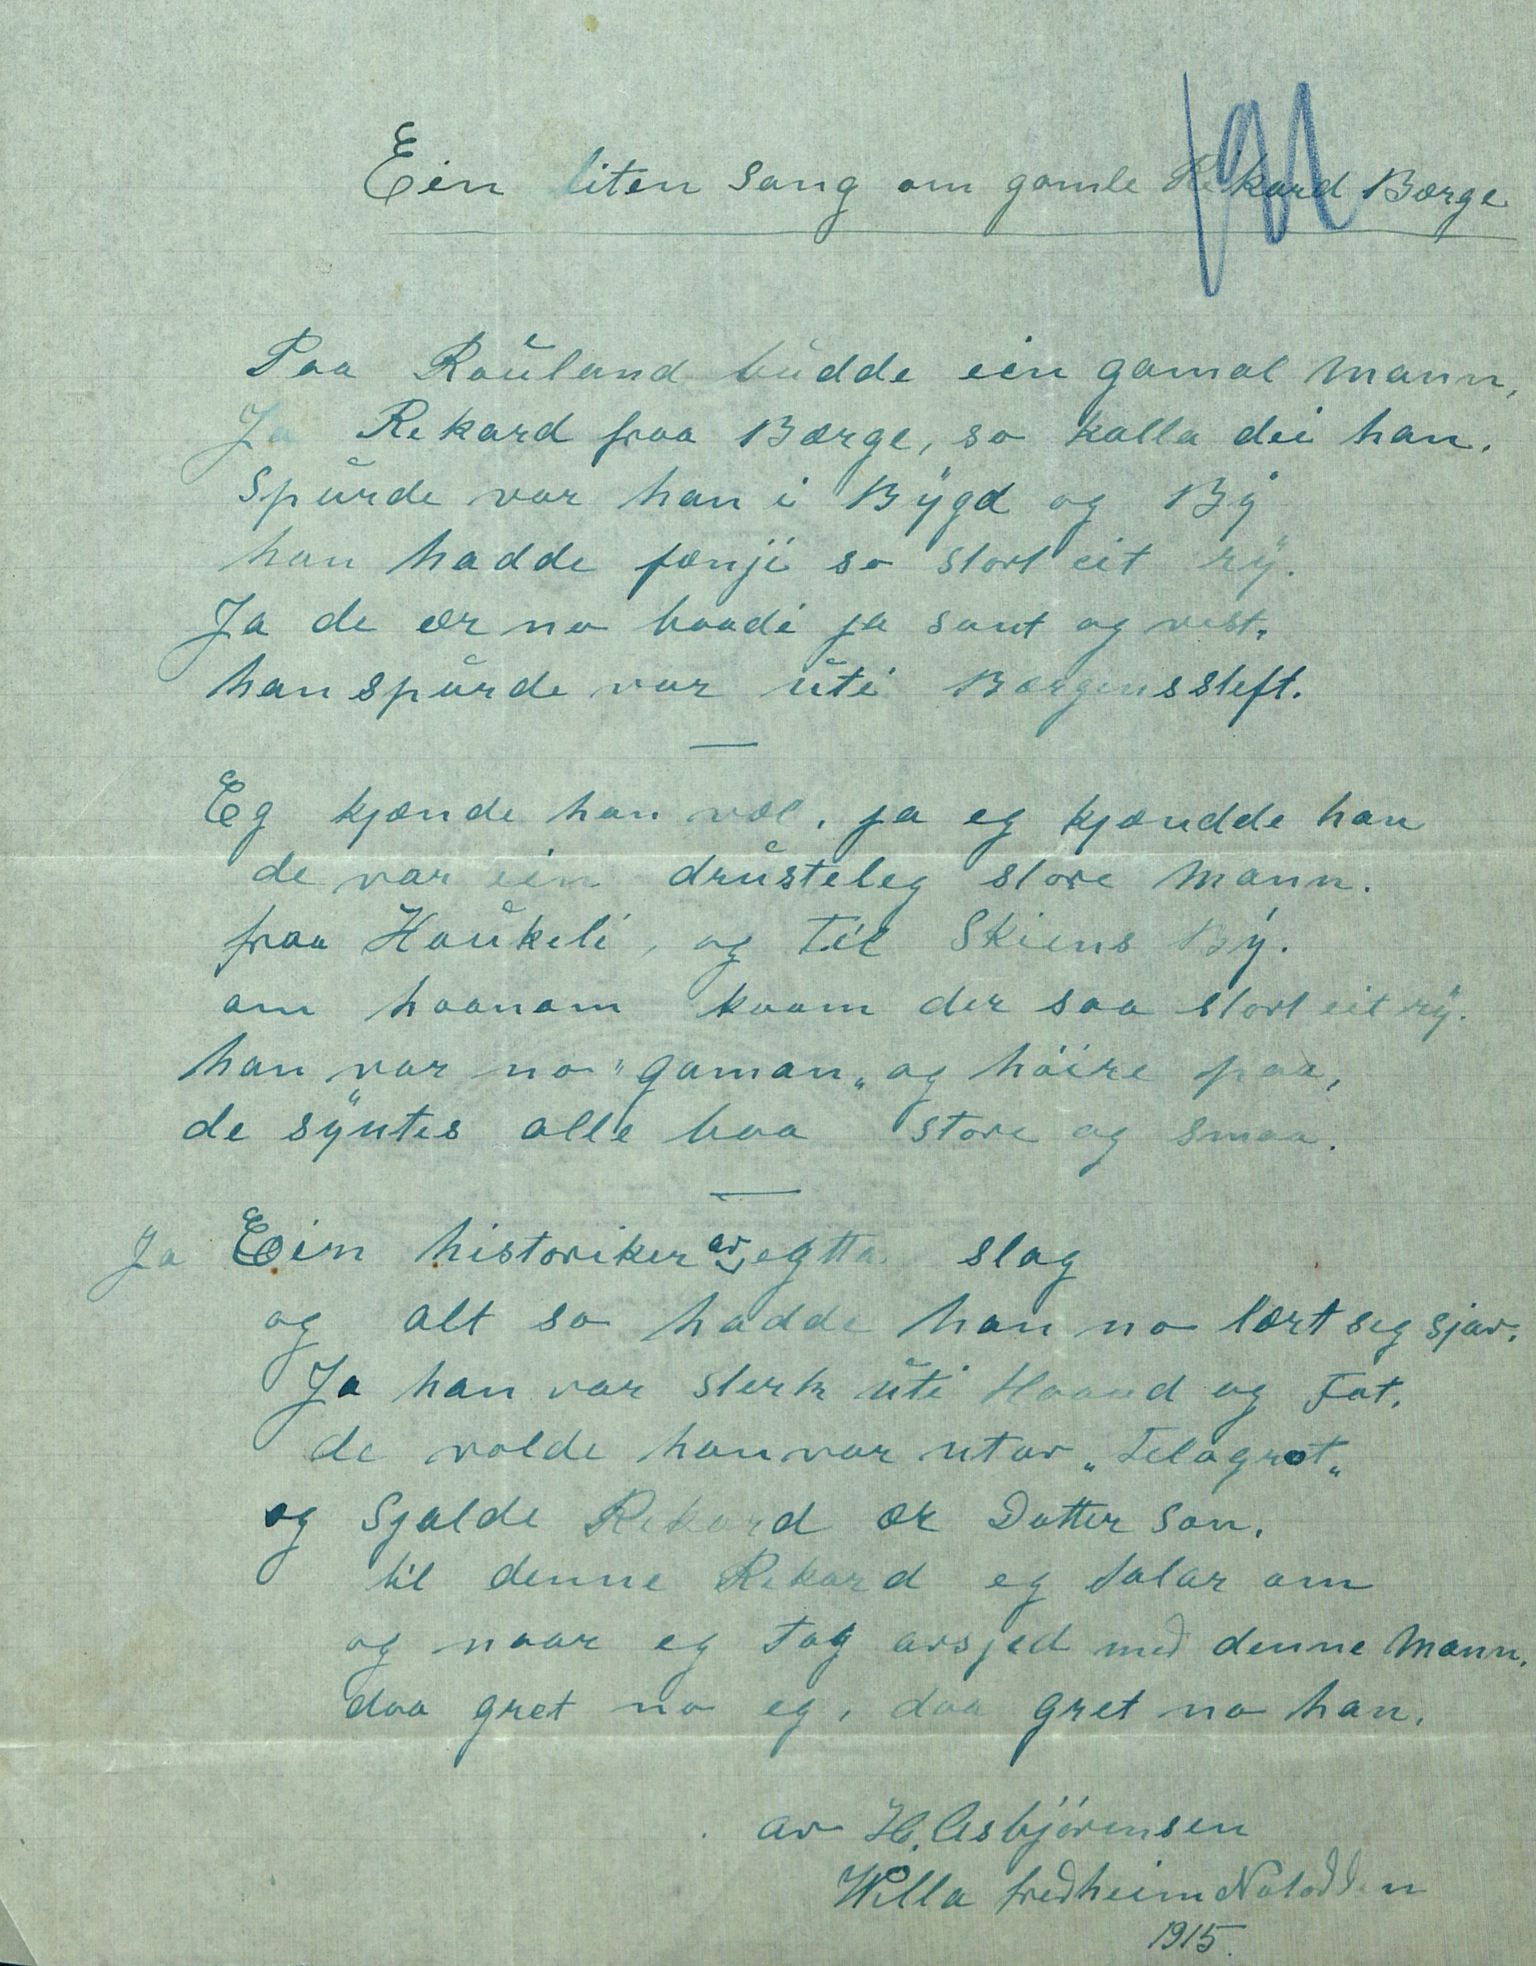 Ein liten sang om gamle Rikard Bærge
Paa Rauland budde ein gamal Mann,
Ja Rekard fraa Bærge, so kalla dei han.
Spurde var han i Bÿgd og Bÿ
han hadde fænji so stort eit rÿ.
Ja de ær no baadi ja sant og vist.
han spurde var uti Bærgensstift.
Eg kjænde han væl, ja eg kjændde han
de var ein drusteleg store Mann.
fraa Haukeli, og Til Skiens Bÿ.
om haanom kaam der saa stort eit rÿ.
han var no "gaman„ og höire paa,
de sÿntes alle baa store og smaa.
Ja Ein historiker av egtta slag
og alt so hadde han no lært seg sjav.
Ja han var sterk uti Haand og Fot,
de volde han var utav „Telagrot„
og Sjalde Rekard ær Dotter son,
til denne Rekard eg talar om
og naar eg tog avsjed med denne Mann,
daa gret no eg, daa gret no han.
av H. Asbjörensen
Willa fredheim Notodden
1915.